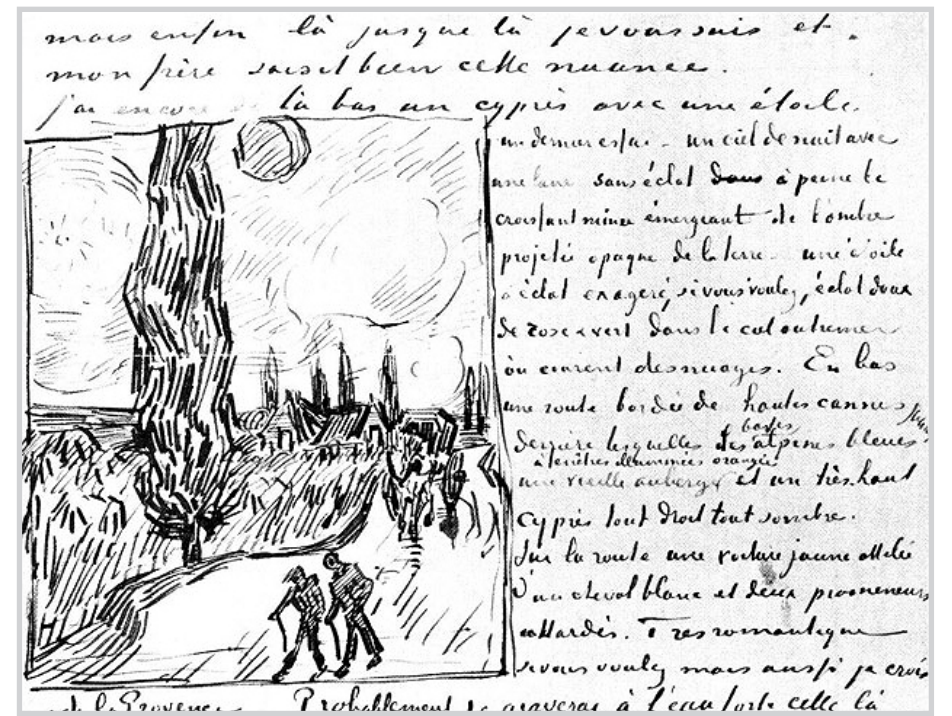 mais enfin là jusque là je vous suis et
mon frère saisit bien cette nuance.
j'ai encore de là bas un cyprès avec une étoile.
un dernier essai - un ciel de nuit avec
une lune sans éclat à peine le
croissant mince émergeant de l'ombre
projetée opaque de la terre - une étoile
à éclat exagéré, si vous voulez, éclat doux
de rose & vert dans le ciel outremer
où courent des nuages. En bas
une route bordée de hautes cannes jaunes
basses
derrière lesquelles les alpines bleues
à fenêtres illuminées orangées
une vieille auberge et un très haut
cyprès tout droit tout sombre.
Sur la route une voiture jaune attelée
d'un cheval blanc et deux promeneurs
attardés. Très romantique
si vous voulez mais aussi je crois
de la Provence. Probablement je graverai à l'eau forte celle là